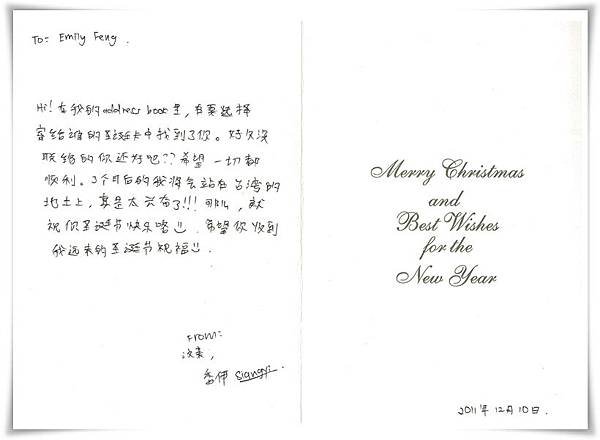 To: Emily Feng.
Hi! 在我的address book里，在要选择
寄给谁的圣诞卡中找到了你。好久没
联络的你还好吧?? 希望一切都
顺利。3个月后的我将会站在台湾的
地土上，真是太兴奋了!!! 那么，就
祝你圣诞节快乐喽 :) 希望你收到
我远来的圣诞节祝福 :).
From:
汶莱，
香伊 Siangyi.
Merry Christmas
and
Best Wishes
for the
New Year
2011年12月10日.